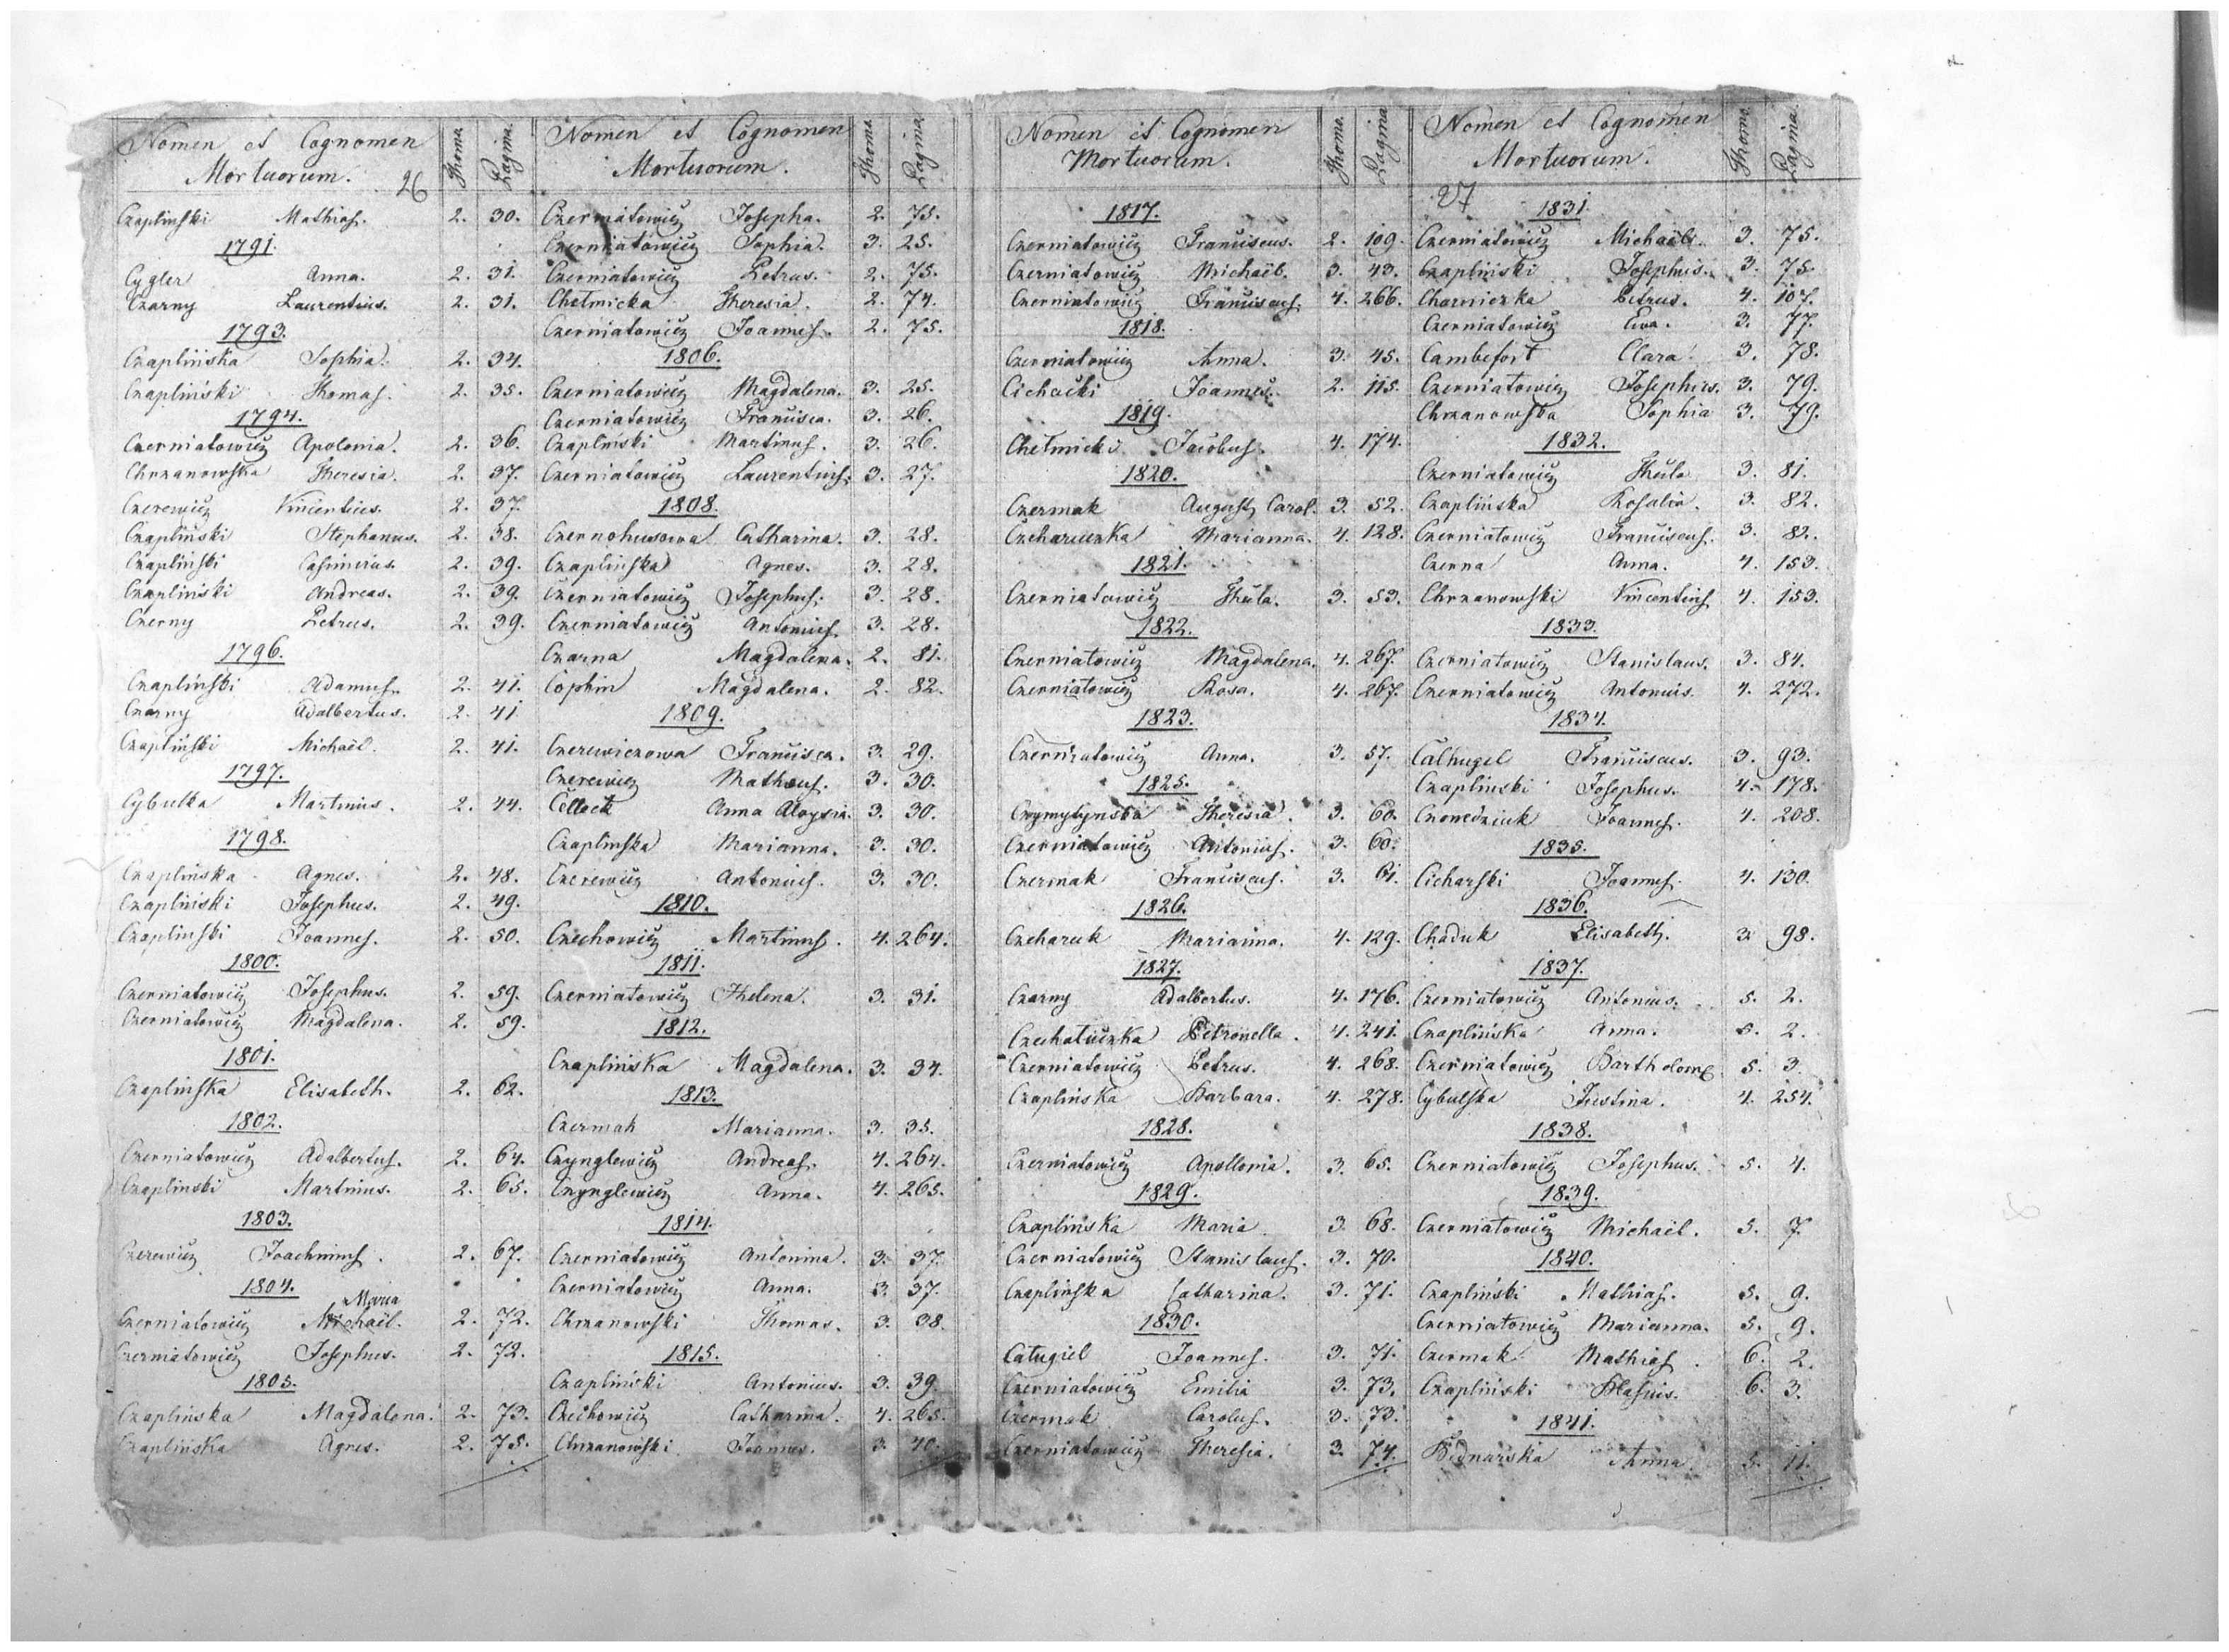 Nomen et Cognomen Thoma. Pagina.
Mortuorum. 26
Czaplinski Mathias. 2. 30.
1791.
Cygler Anna. 2. 31.
Czarny Laurentius. 2. 31.
1793.
Czaplińska Sophia. 2. 34.
Czapliński Thomas. 2. 35.
1794.
Czerniatowicz Apolonia. 2. 36.
Chrzanowska Theresia. 2. 37.
Czerewicz Vincentius. 2. 37.
Czapliński Stephanus. 2. 38.
Czapliński Casimirus. 2. 39.
Czapliński Andreas. 2. 39.
Czerny Petrus. 2. 39.
1796.
Czapliński Adamus. 2. 41.
Czarny Adalbertus. 2. 41
Czapliński Michaël. 2. 41.
1797.
Cybulka Martinus. 2. 44.
1798.
Czaplińska Agnes. 2. 48.
Czapliński Josephus. 2. 49.
Czaplinski Joannes. 2. 50.
1800.
Czerniatowicz Josephus. 2. 59.
Czerniatowicz Magdalena. 2. 59.
1801.
Czaplinska Elisabeth. 2. 62.
1802.
Czerniatowicz Adalbertus. 2. 64.
Czaplinski Martinus. 2. 65.
1803.
Czerewicz Joachimus. 2. 67.
1804.
Maria
Czerniatowicz Michaël. 2. 72.
Czerniatowicz Josephus. 2. 72.
1805.
Czaplińska Magdalena. 2. 73.
Czaplińska Agnes. 2. 75.
Nomen et Cognomen Thoma. Pagina.
Mortuorum.
Czerniatowicz Josepha. 2. 75.
Czerniatowicz Sophia. 3. 25.
Czerniatowicz Petrus. 2. 75.
Chełmicka Theresia. 2. 74.
Czerniatowicz Joannes. 2. 75.
1806.
Czerniatowicz Magdalena. 3. 25.
Czerniatowicz Francisca. 3. 26.
Czapliński Martinus. 3. 26.
Czerniatowicz Laurentius. 3. 27.
1808.
Czernohusowa Catharina. 3. 28.
Czaplinska Agnes. 3. 28.
Czerniatowicz Josephus. 3. 28.
Czerniatowicz Antonius. 3. 28.
Czarna Magdalena. 2. 81.
Cophin Magdalena. 2. 82.
1809.
Czerewiczowa Francisca. 3. 29.
Czerewicz Matheus. 3. 30.
Anna Aloysia. 3. 30.
Czaplinska Marianna. 3. 30.
Czerewicz Antonius. 3. 30.
1810.
Czechowicz Martinus. 4. 264.
1811.
Czerniatowicz Helena. 3. 31.
1812.
Czaplińska Magdalena. 3. 34.
1813.
Czermak Marianna. 3. 35.
Czynglewicz Andreas. 4. 264.
Czynglewicz Anna. 4. 265.
1814.
Czerniatowicz Antonina. 3. 37.
Czerniatowicz Anna. 3. 37.
Chrzanowski Thomas. 3. 38.
1815.
Czapliński Antonius. 3. 39.
Czechowicz Catharina. 4. 265.
Chrzanowski Joannes. 3. 40.
Nomen et Cognomen Thoma. Pagina
Mortuorum.
1817.
Czerniatowicz Franciscus. 2. 109.
Czerniatowicz Michaël. 3. 43.
Czerniatowicz Franciscus. 4. 266.
1818.
Czerniatowicz Anna. 3. 45.
Cichacki Joannes. 2. 115.
1819.
Chełmicki Jacobus. 4. 174.
1820.
Czermak August Carol. 3. 52.
Marianna. 4. 128.
1821.
Czerniatowicz Thecla. 3. 53.
1822.
Czerniatowicz Magdalena. 4. 267.
Czerniatowicz Rosa. 4. 267.
1823.
Czerniatowicz Anna. 3. 57.
1825.
Theresia. 3. 60.
Czerniatowicz Antonius. 3. 60.
Czermak Franciscus. 3. 61.
1826.
Marianna. 4. 129.
1827.
Czarny Adalbertus. 4. 176.
Petronella. 4. 241.
Czerniatowicz Petrus. 4. 268.
Czaplinska Barbara. 4. 278.
1828.
Czerniatowicz Apollonia. 3. 65.
1829.
Czaplińska Maria 3. 68.
Czerniatowicz Stanislaus. 3. 70.
Czaplińska Catharina. 3. 71.
1830.
Catugiel Joannes. 3. 71.
Czerniatowicz Emilia 3. 73.
Czermak Carolus. 3. 73.
Czerniatowicz Theresia. 3. 74.
Nomen et Cognomen Thoma. Pagina.
Mortuorum.
27 1831.
Czerniatowicz Michaël. 3. 75.
Czapliński Josephus. 3. 75.
Petrus. 4. 107.
Czerniatowicz Ewa. 3. 77.
Cambefort Clara. 3. 78.
Czerniatowicz Josephus. 3. 79.
Chrzanowska Sophia 3. 79.
1832.
Czerniatowicz Thecla 3. 81.
Czaplińska Rosalia. 3. 82.
Czerniatowicz Franciscus. 3. 82.
Czerna Anna. 4. 153.
Chrzanowski Vincentius 4. 153.
1833.
Czerniatowicz Stanislaus. 3. 84.
Czerniatowicz Antonius. 4. 272.
1834.
Calhugel Franciscus. 3. 93.
Czaplinski Josephus. 4. 178.
Joannes. 4. 208.
1835.
Cicharski Joannes. 4. 130.
1836.
Chaduk Elisabeth. 3. 98.
1837.
Czerniatowicz Antonius. 5. 2.
Czaplińska Anna. 5. 2.
Czerniatowicz Bartholome 5. 3.
Cybulska Justina. 4. 254.
1838.
Czerniatowicz Josephus. 5. 4.
1839.
Czerniatowicz Michaël. 5. 7.
1840.
Czapliński Mathias. 5. 9.
Czerniatowicz Marianna. 5. 9.
Czermak Mathias. 6. 2.
Czapliński Blasius. 6. 3.
1841.
Bednarska Anna. 5. 11.